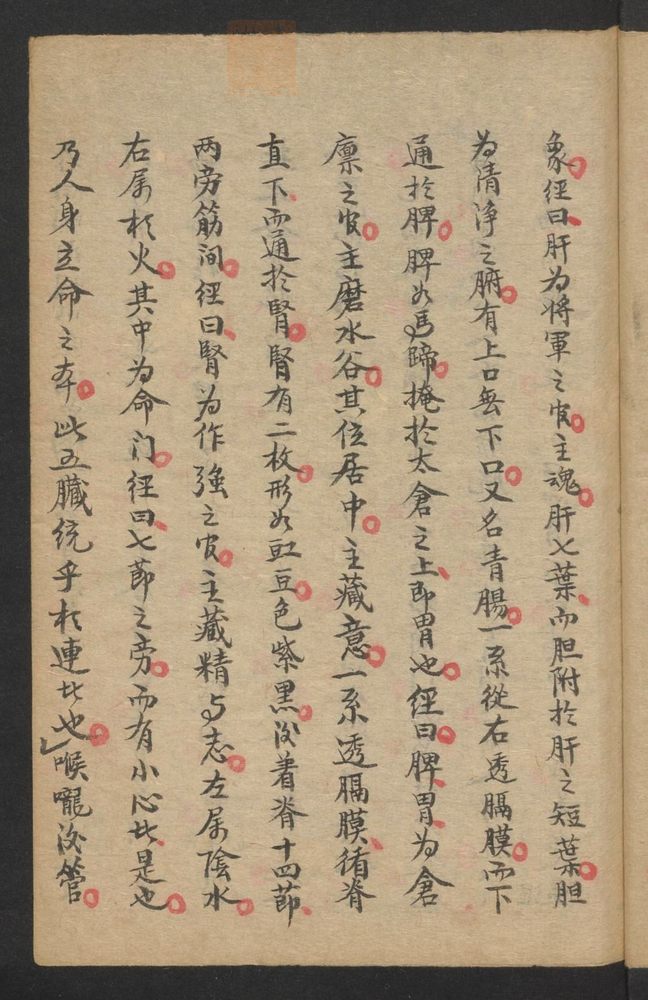 象经曰肝为将軍之官主魂肝七葉而胆附於肝之短葉胆
为清净之腑有上口無下口又名青腸一系從右透膈膜而下
通於脾脾如馬蹄掩於太倉之上即胃也經曰脾胃为倉
廪之官主磨水谷其位居中主藏意一系透膈膜循脊
直下而通於腎腎有二枚形如豇豆色紫黑後着脊十四節
两旁筋间經曰腎为作強之官主藏精与志左属陰水
右属於火其中为命门經曰七節之旁而有小心者是也
乃人身立命之本此五臟統乎於連者也喉嚨後管